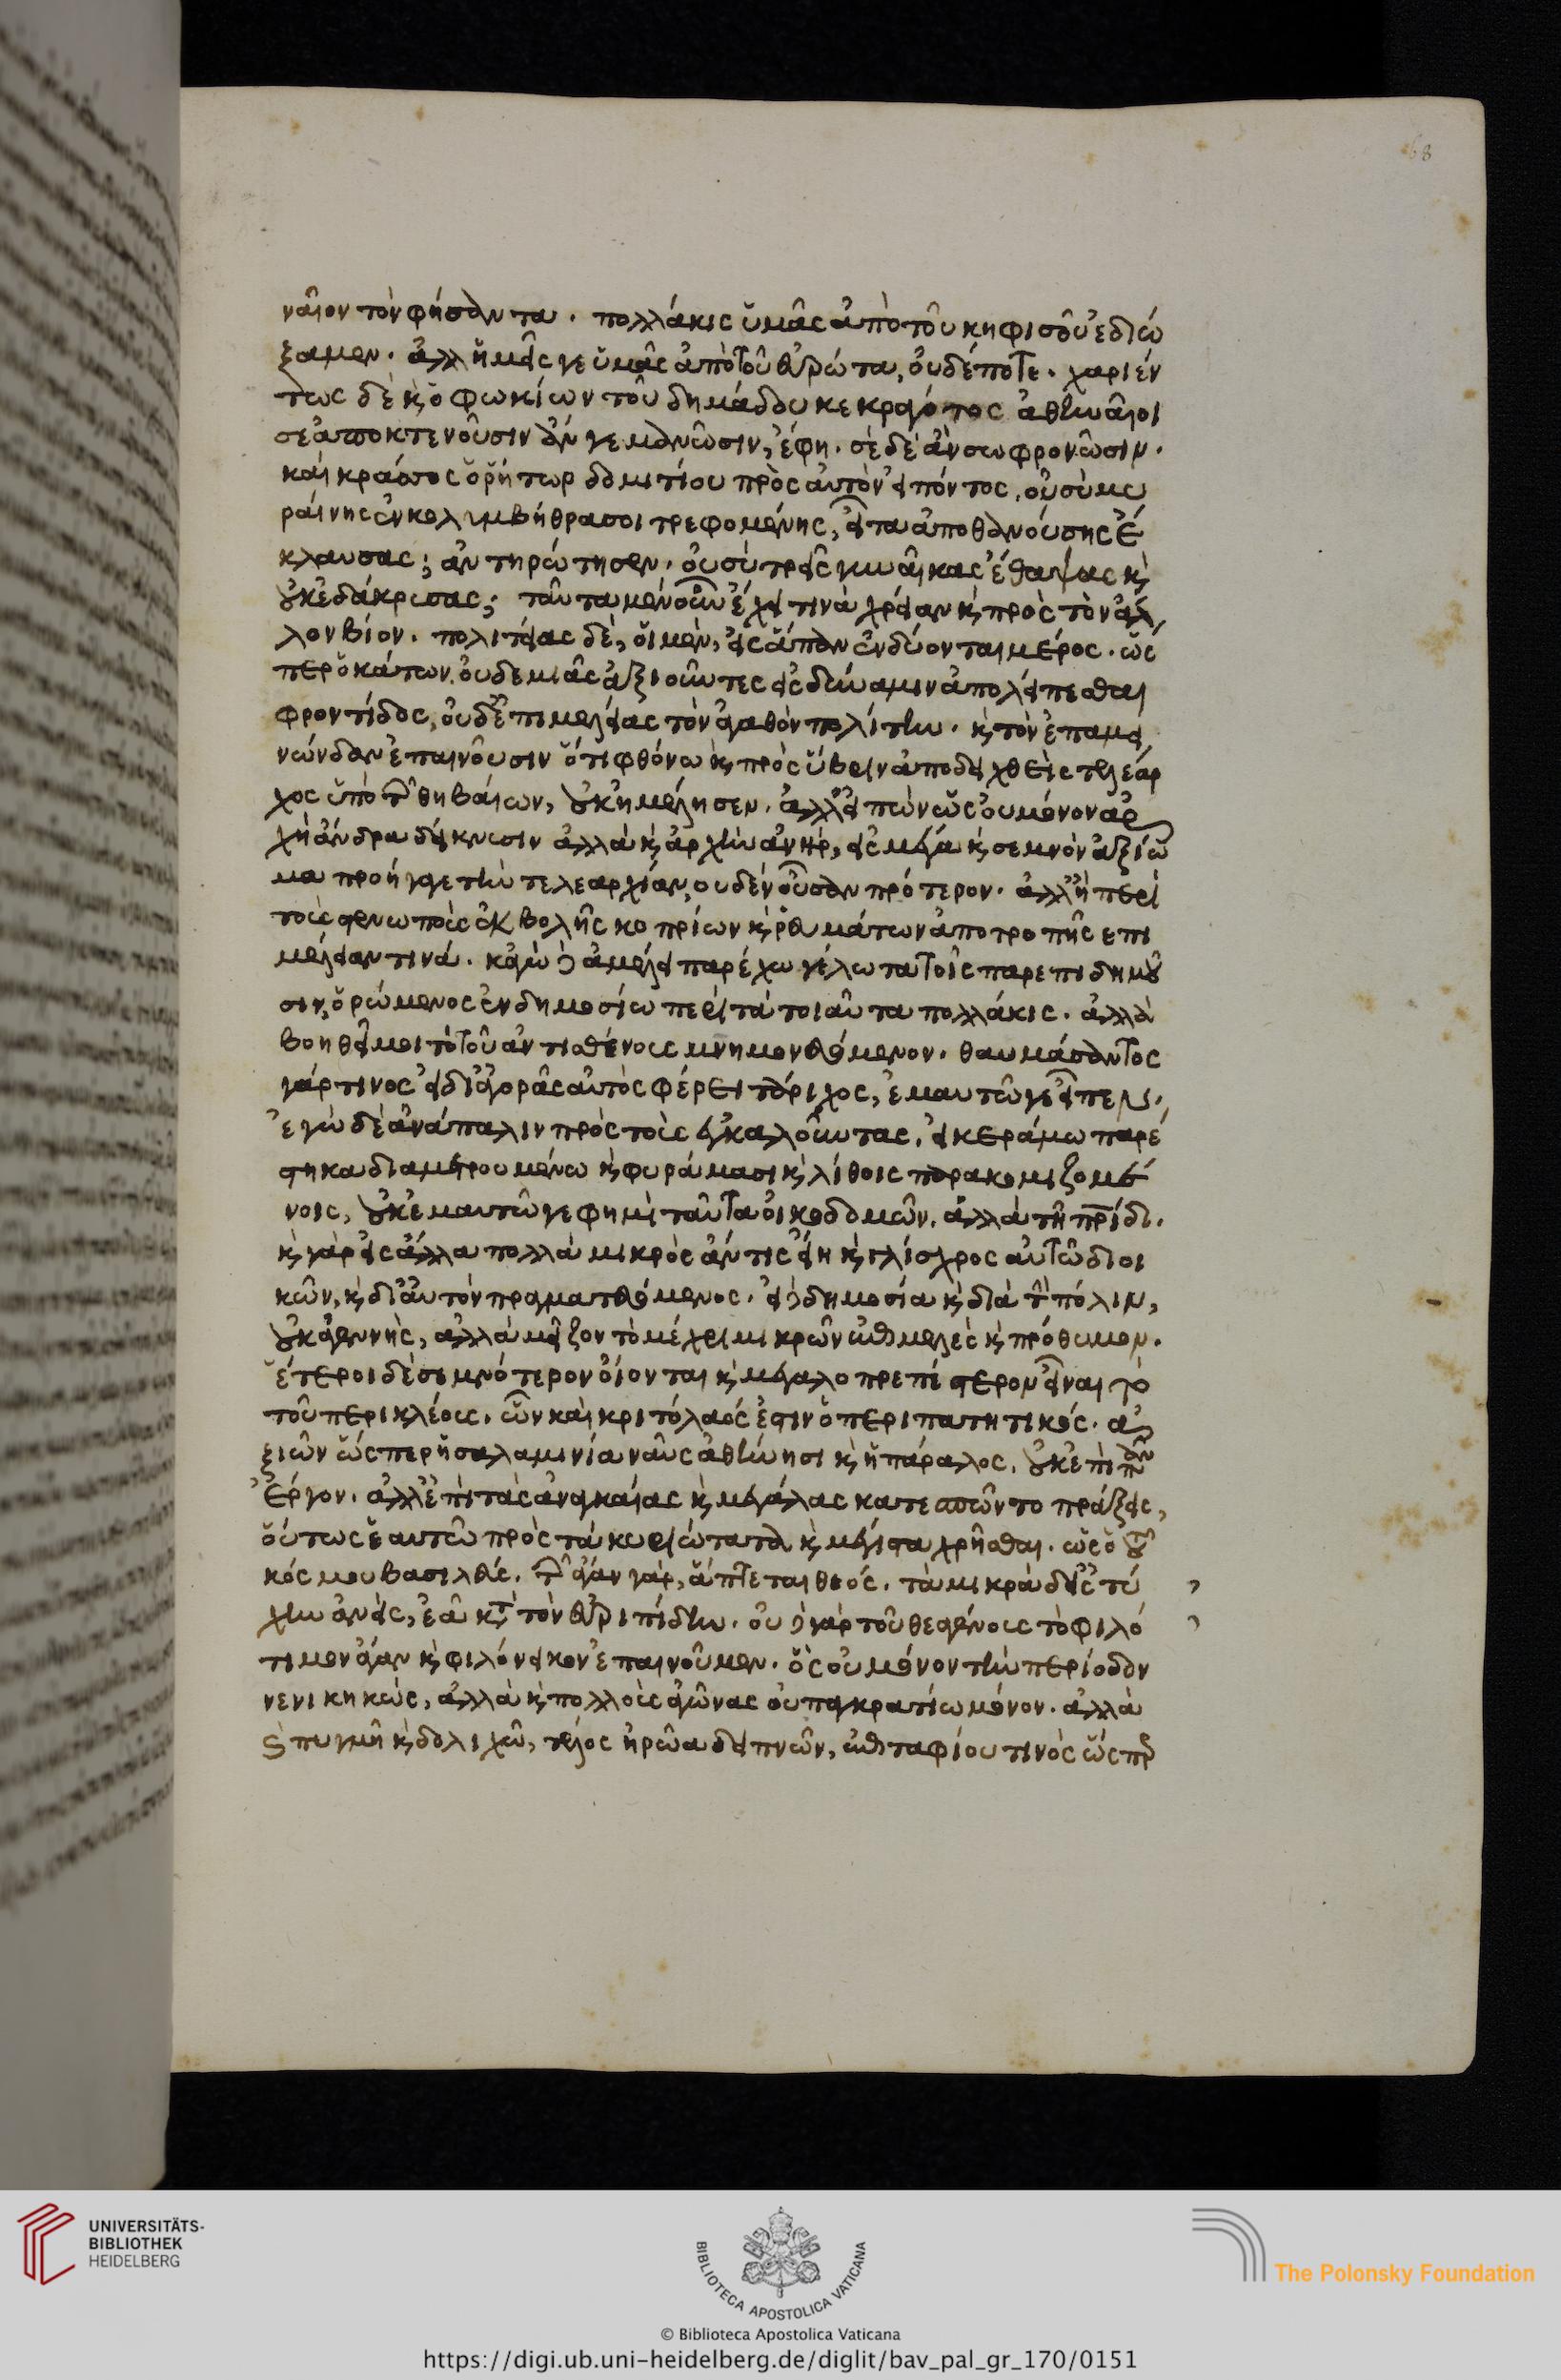 68
ναῖον τὸν φήσαντα. πολλάκις ὑμᾶς ἀπὸ τοῦ κηφισοῦ ἐδιώ
ξαμεν. ἀλλ' ἡμεῖς γε ὑμᾶς ἀπὸ τοῦ εὐρώτα, οὐδέποτε. χαριέν
τως δὲ κὶ ὁ φωκίων τοῦ δημάδου κεκραγότος ἀθηναῖοι
σε ἀποκτενοῦσιν ἄν γε μανῶσιν, ἔφη. σὲ δὲ ἂν σωφρονῶσιν.
καὶ κράσσος ὁ ῥήτωρ δομιτίου πρὸς αὐτὸν εἰπόντος, οὐ σὺ μυ
ραίνης ἐν κολυμβήθρα σοι τρεφομένης, εἶτα ἀποθανούσης ἔ
κλαυσας; ἀντηρώτησεν. οὐ σὺ τρεῖς γυναῖκας ἔθαψας κὶ
οὐκ ἐδάκρυσας; ταῦτα μὲν οὖν ἔχει τινὰ χρείαν κὶ πρὸς τὸν ἄλ
λον βίον. πολιτείας δὲ, οἱ μὲν, εἰς ἅπαν ἐνδύονται μέρος. ὥς
περ ὁ κάτων, οὐδεμιᾶς ἀξιοῦντες εἰς δύναμιν ἀπολείπεσθαι
φροντίδος, οὐδ' ἐπιμελείας τὸν ἀγαθὸν πολίτην. κὶ τὸν ἐπαμει
νώνδαν ἐπαινοῦσιν ὅτι φθόνω κὶ πρὸς ὕβριν ἀποδειχθεὶς τελέαρ
χος ὑπὸ τῶν θηβαίων, οὐκ ἠμέλησεν. ἀλλ' εἰπὼν ὡς οὐ μόνον ἀρ
χὴ ἄνδρα δείκνυσιν ἀλλὰ κὶ ἀρχὴν ἀνήρ, εἰς μέγα κὶ σεμνὸν ἀξίω
μα προήγαγε τὴν τελεαρχίαν, οὐδὲν οὖσαν πρότερον. ἀλλ' ἢ περὶ
τοὺς στενωποὺς ἐκβολῆς κοπρίων κὶ ῥευμάτων ἀποτροπῆς επι
μέλειαν τινά. καγὼ δ' ἀμέλει παρέχω γέλωτα τοῖς παρεπιδημοῦ
σιν, ὁρώμενος ἐν δημοσίω περὶ τὰ τοιαῦτα πολλάκις. ἀλλὰ
βοηθεῖ μοι τὸ τοῦ ἀντισθένους μνημονευόμενον. θαυμάσαντος
γάρ τινος εἰ δι' ἀγορᾶς αὐτὸς φέρει τάριχος, ἐμαυτῶ γε εἶπεν.
ἐγὼ δὲ ἀνάπαλιν πρὸς τοὺς ἐγκαλοῦντας, εἰ κεράμω παρέ
στηκα διαμετρουμένω κὶ φυράμασι κὶ λίθοις παρακομιζομέ
νοις, οὐκ ἐμαυτῶ γε φημὶ ταῦτα οἰκοδομῶν, ἀλλὰ τῆ πρίδι.
κὶ γὰρ εἰς ἄλλα πολλὰ μικρὸς ἄν τις εἴη κὶ γλίσχρος αὐτῶ διοι
κῶν, κὶ δι' αὐτὸν πραγματευόμενος. εἰ δὲ δημοσία κὶ διὰ τὴν πόλιν,
οὐκ ἀγεννὴς, ἀλλὰ μεῖζον τὸ μέχρι μικρῶν ἐπιμελὲς κὶ πρόθυμον.
ἕτεροι δὲ σεμνότερον οἴονται κὶ μεγαλοπρεπέστερον εἶναι τὸ
τοῦ περικλέους. ὧν καὶ κριτόλαός ἐστιν ὁ περιπατητικός. ἀ
ξιῶν ὥσπερ ἡ σαλαμινία ναῦς ἀθήνησι κὶ ἡ πάραλος, οὐκ ἐπὶ πᾶν
ἔργον. ἀλλ' ἐπὶ τὰς ἀναγκαίας κὶ μεγάλας κατεσπῶντο πράξεις,
οὕτως ἑαυτῶ πρὸς τὰ κυριώτατα κὶ μέγιστα χρῆσθαι. ὡς ὁ τοῦ
κόσμου βασιλεύς. τῶν ἄγαν γὰρ, ἅπτεται θεός. τὰ μικρὰ δ' εἰς τύ
χην ἀνεὶς, ἐᾶ κατὰ τὸν εὐριπίδην. οὐδὲ γὰρ τοῦ θεαγένους τὸ φιλό
τιμον ἄγαν κὶ φιλόνεικον ἐπαινοῦμεν. ὃς οὐ μόνον τὴν περίοδον
νενικηκὼς, ἀλλὰ κὶ πολλοὺς ἀγῶνας οὐ παγκρατίω μόνον. ἀλλὰ
κὶ πυγμῆ κὶ δολιχῶ, τέλος ἡρῶα δειπνῶν, ἐπιταφίου τινὸς ὥσπερ
UNIVERSITÄTS-
BIBLIOTHEK
HEIDELBERG
BIBLIOTECA APOSTOLICA VATICANA
The Polonsky Foundation
© Biblioteca Apostolica Vaticana
https://digi.ub.uni-heidelberg.de/diglit/bav_pal_gr_170/0151